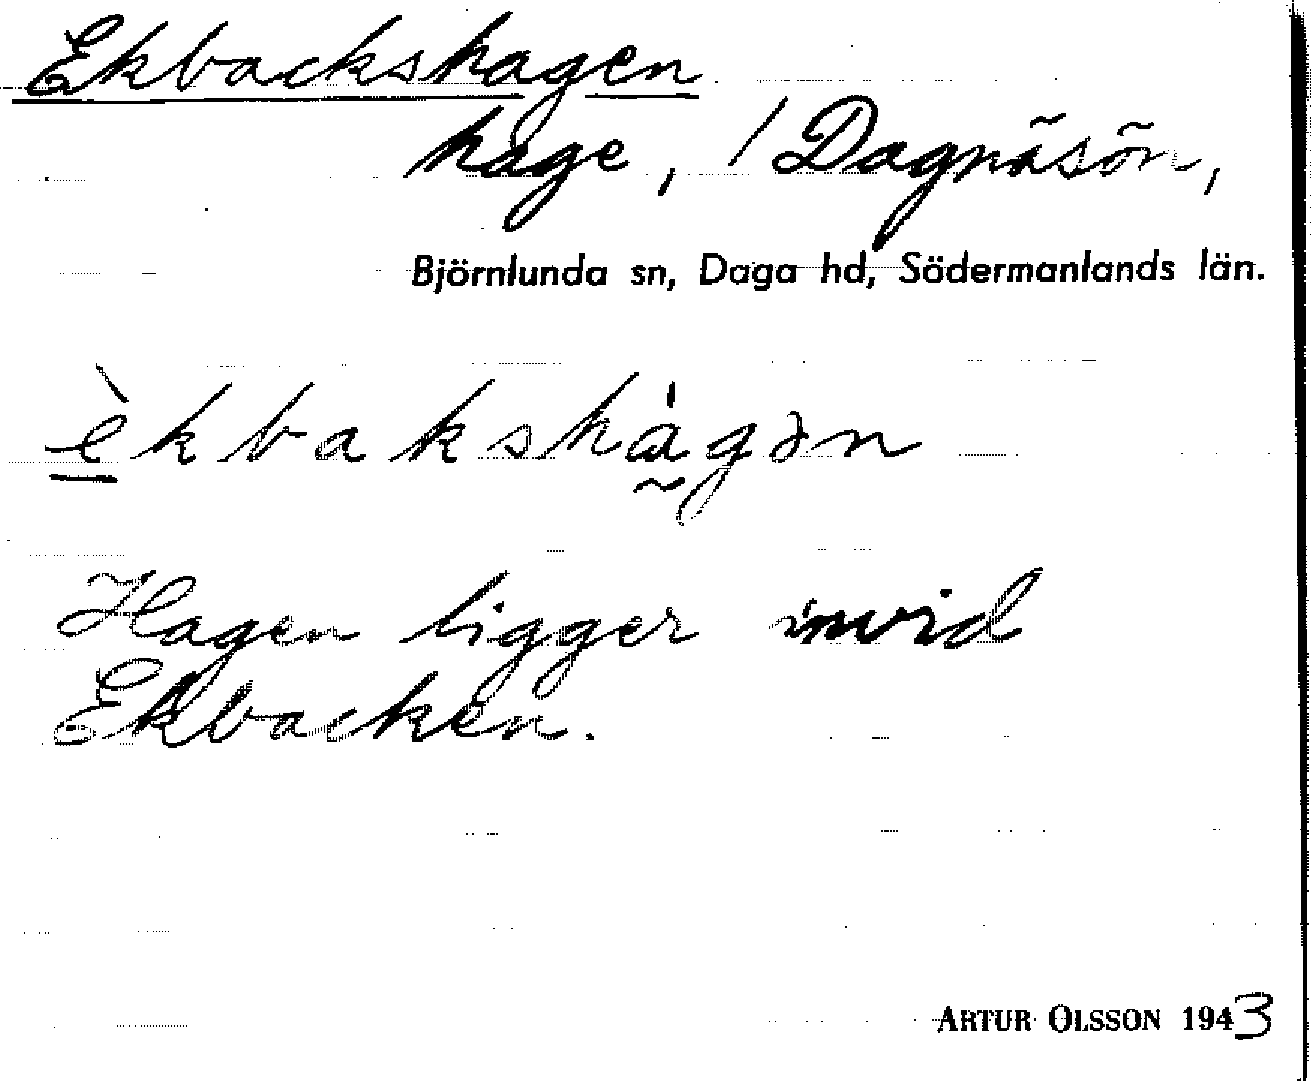 Ekbackshagen
hage, / Dagnäsön,
Björnlunda sn, Daga hd, Södermanlands län.
èkbakshágən
Hagen ligger invid
Ekbacken.
ARTUR OLSSON 1943